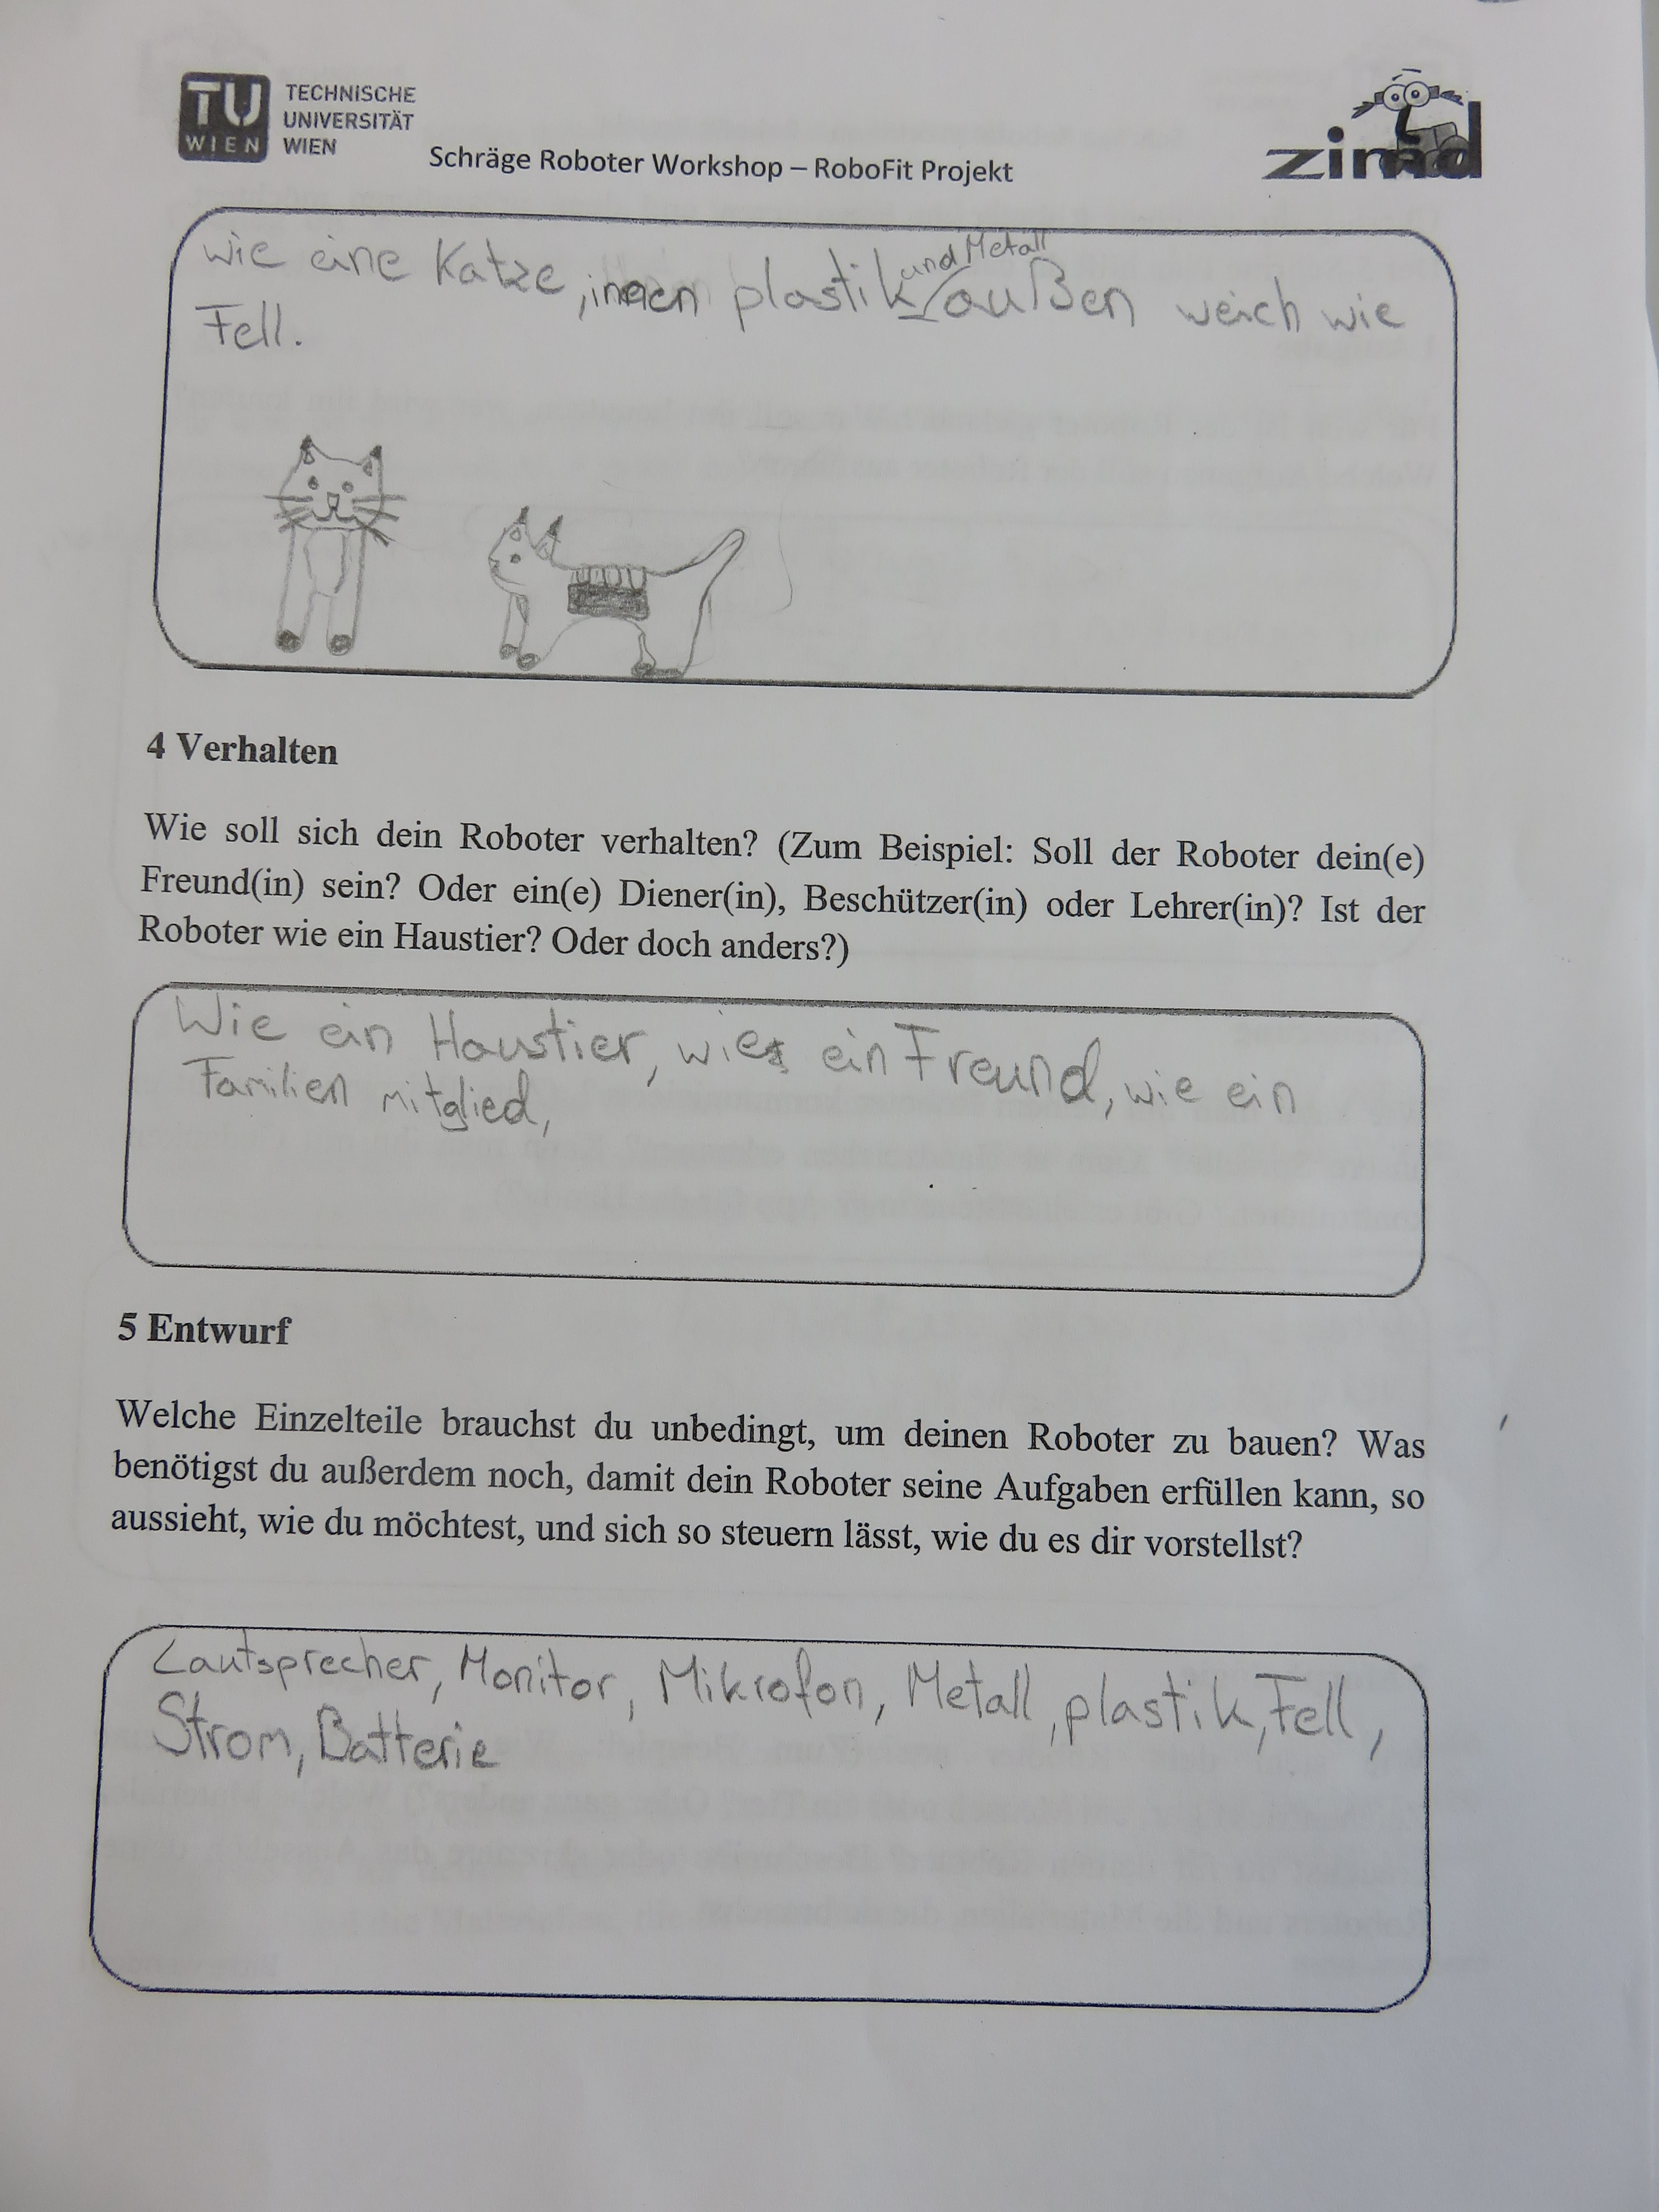 TU
WIEN
TECHNISCHE
UNIVERSITÄT
WIEN
Schräge Roboter Workshop – RoboFit Projekt
zimd
wie eine Katze, innen plastik und Metall, außen weich wie
Fell.
4 Verhalten
Wie soll sich dein Roboter verhalten? (Zum Beispiel: Soll der Roboter dein(e)
Freund(in) sein? Oder ein(e) Diener(in), Beschützer(in) oder Lehrer(in)? Ist der
Roboter wie ein Haustier? Oder doch anders?)
Wie ein Haustier, wie ein Freund, wie ein
Familien mitglied,
5 Entwurf
Welche Einzelteile brauchst du unbedingt, um deinen Roboter zu bauen? Was
benötigst du außerdem noch, damit dein Roboter seine Aufgaben erfüllen kann, so
aussieht, wie du möchtest, und sich so steuern lässt, wie du es dir vorstellst?
Lautsprecher, Monitor, Mikrofon, Metall, plastik, Fell,
Strom, Batterie